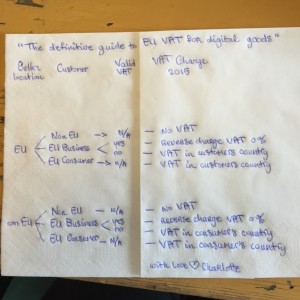 "The definitive guide to EU VAT for digital goods"
Seller location Customer Valid VAT VAT Charge 2015
EU
Non EU → N/A — No VAT
EU Business yes — Reverse charge VAT 0%
no — VAT in customer's country
EU Consumer → N/A — VAT in customer's country
non EU
Non EU → N/A — No VAT
EU Business yes — Reverse charge VAT 0%
no — VAT in consumer's country
EU Consumer → N/A — VAT in consumer's country
with Love ♡ Charlotte